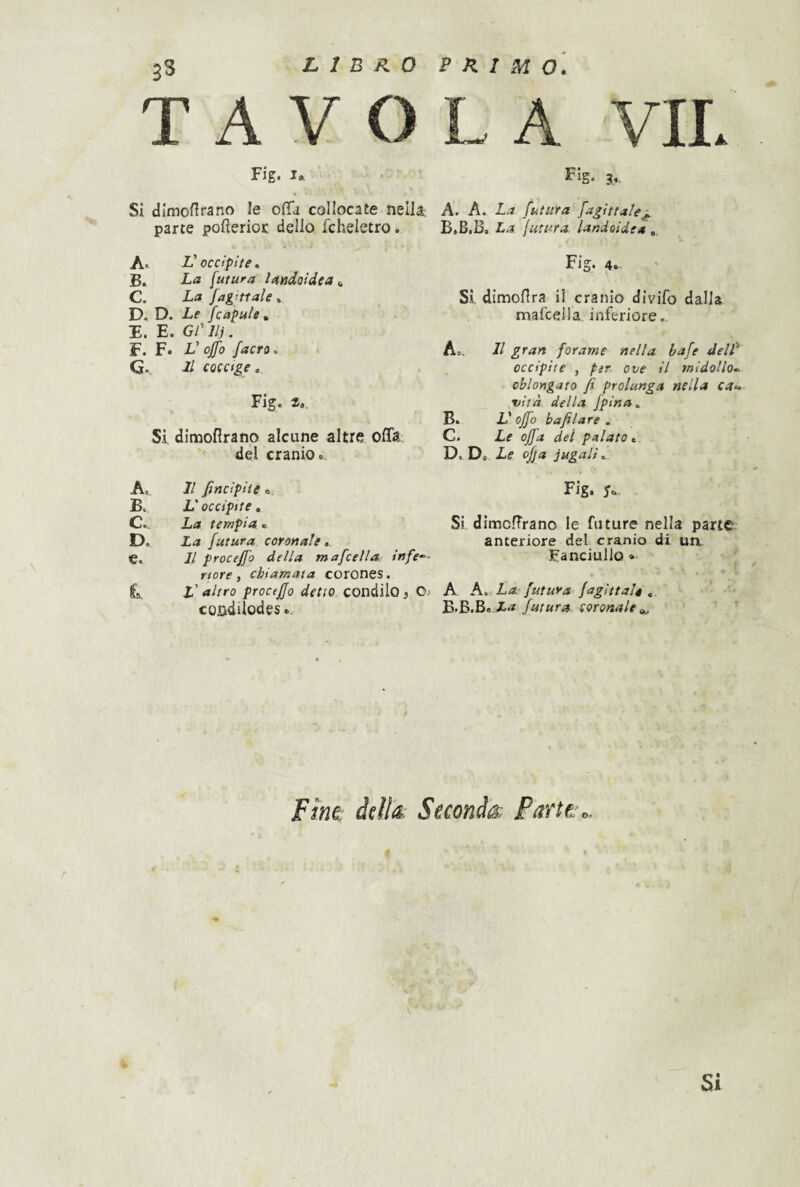 38 LIBRO PRIMO.
TAVOLA VII.
Fig. 1.
Si dimoſtrano le oſſa collocate nella
parte poſterior dello ſcheletro.
A. L'occipite.
B. La ſutura landoidea.
C. La ſagittale.
D. D. Le ſcapule.
E. E. Gl' Ilj.
F. F. L'oſſo ſacro.
G. Il coccige.
Fig. 2.
Si dimoſtrano alcune altre oſſa
del cranio.
A. Il ſincipite.
B. L'occipite.
C. La tempia.
D. La ſutura coronale.
e. Il proceſſo della maſcella infe-
riore, chiamata corones.
f. L'altro proceſſo detto condilo, o
condilodes.
Fig. 3.
A. A. La ſutura ſagittale.
B.B.B. La ſutura landoidea.
Fig. 4.
Si dimoſtra il cranio diviſo dalla
maſcella inferiore.
A. Il gran forame nella baſe dell'
occipite, per ove il midollo-
oblongato ſi prolunga nella ca-
vità della ſpina.
B. L'oſſo baſilare.
C. Le oſſa del palato.
D. D. Le oſſa jugali.
Fig. 5.
Si dimoſtrano le ſuture nella parte
anteriore del cranio di un
Fanciullo.
A A. La ſutura ſagittale.
B.B.B. La ſutura coronale.
Fine della Seconda Parte.
Si